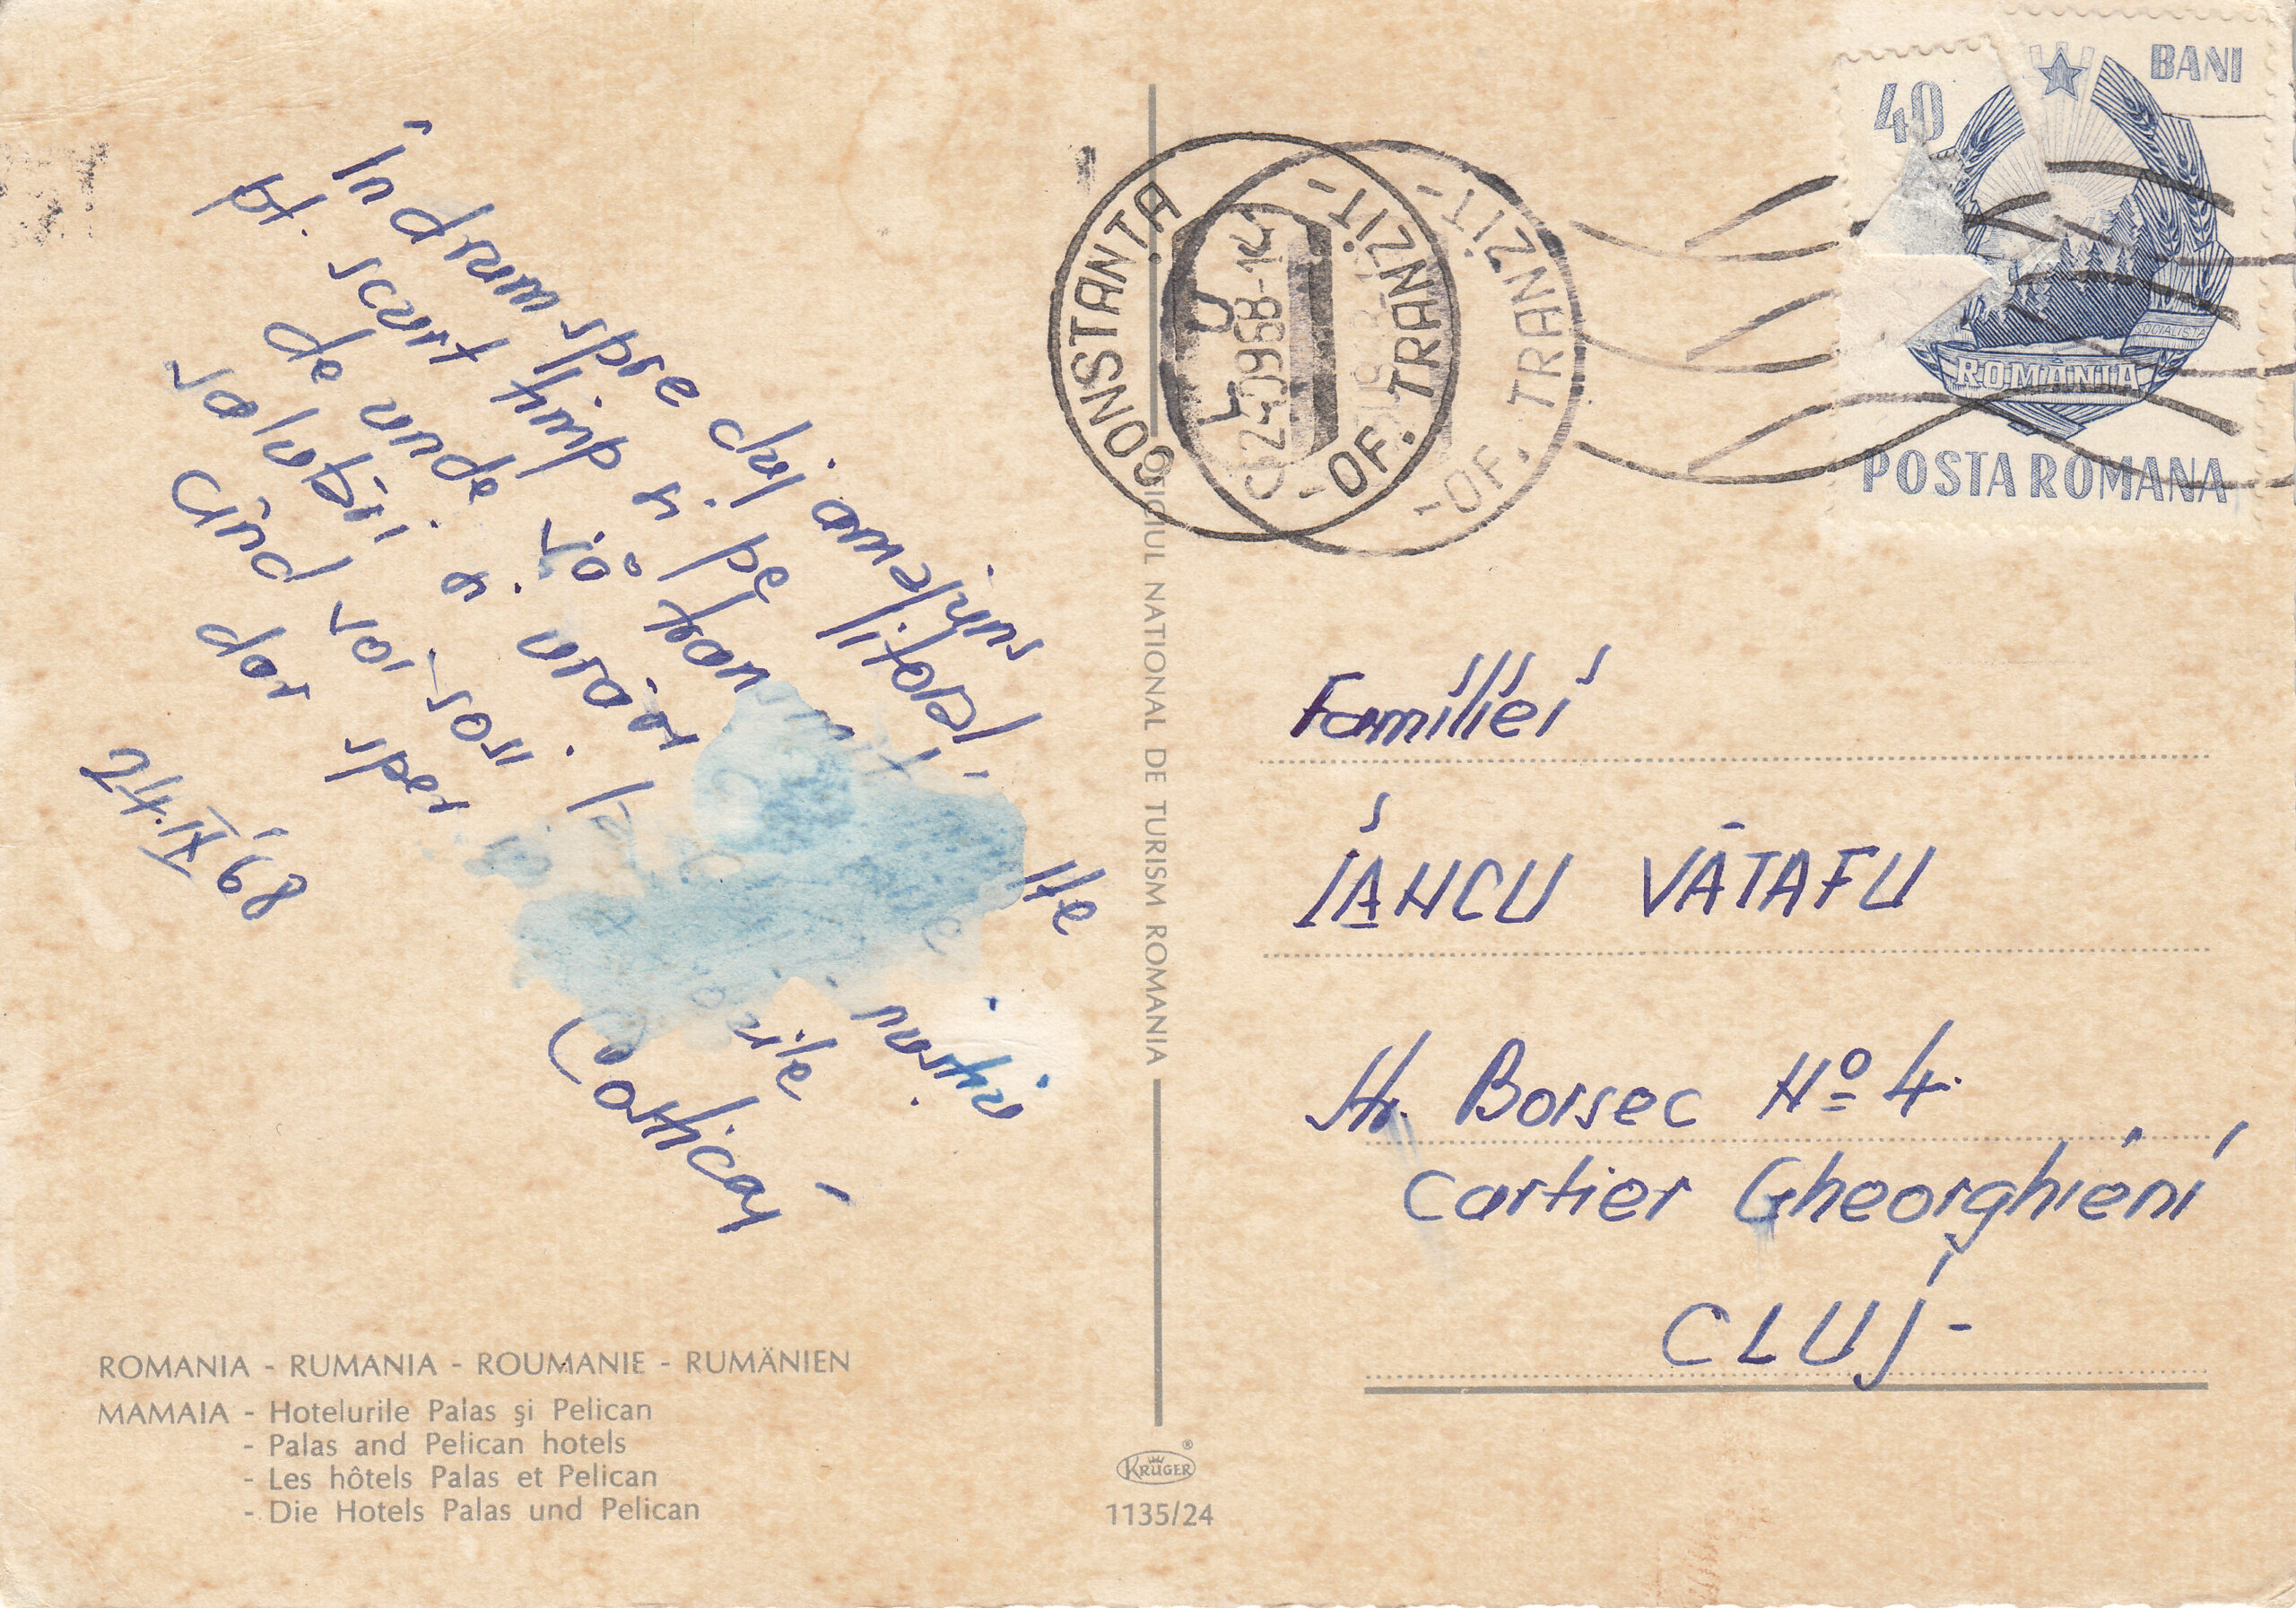 În drum spre cluj am ajuns
pt. scurt timp și pe litoral,
de unde vă transmit
salutări și urări
cînd voi sosi nu știu
dar sper
Costică
24.IX 68
ROMANIA - RUMANIA - ROUMANIE - RUMÄNIEN
MAMAIA - Hotelurile Palas şi Pelican
- Palas and Pelican hotels
- Les hôtels Palas et Pelican
- Die Hotels Palas und Pelican
OFICIUL NATIONAL DE TURISM ROMANIA
KRÜGER®
1135/24
CONSTANȚA
-OF. TRANZIT-
24.09.68-14
-OF. TRANZIT-
40 BANI
SOCIALISTA
ROMÂNIA
POSTA ROMANA
Familiei
IANCU VĂTAFU
Str. Borsec Nº 4.
Cartier Gheorghieni
CLUJ-